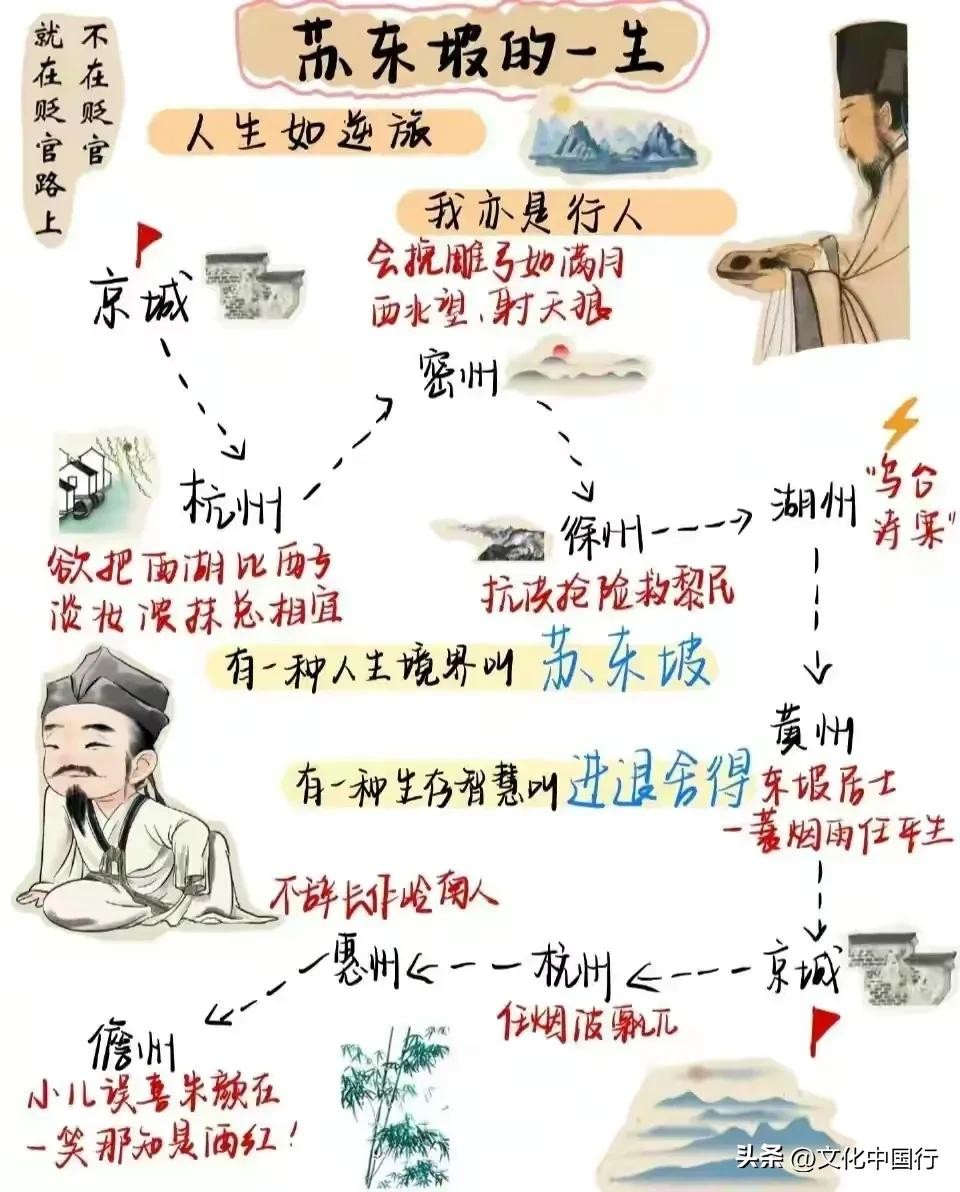 苏东坡的一生
不在贬官
就在贬官路上
人生如逆旅
我亦是行人
京城
会挽雕弓如满月
西北望、射天狼
密州
杭州
欲把西湖比西子
淡妆浓抹总相宜
徐州
抗洪抢险救黎民
湖州
"乌台
诗案"
有一种人生境界叫 苏东坡
有一种生存智慧叫 进退舍得
黄州
东坡居士
一蓑烟雨任平生
京城
杭州
任烟波飘兀
不辞长作岭南人
惠州
儋州
小儿误喜朱颜在
一笑那知是酒红!
头条 @文化中国行